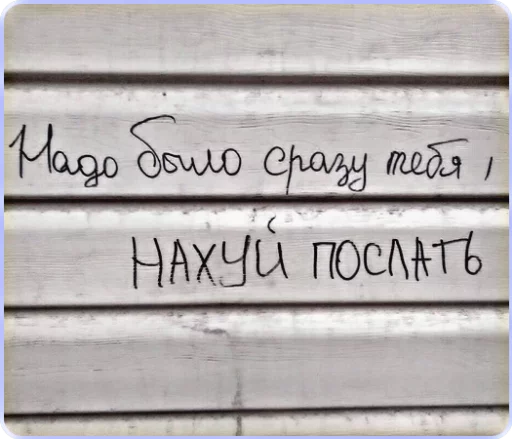 Надо было сразу тебя,
НАХУЙ ПОСЛАТЬ